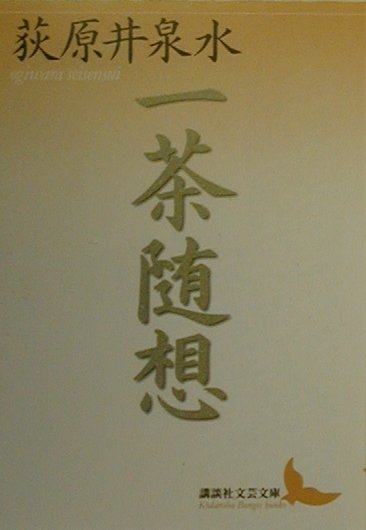 荻原井泉水
ogiwara seisensui
一茶随想
講談社文芸文庫
Kodansha Bungei bunko